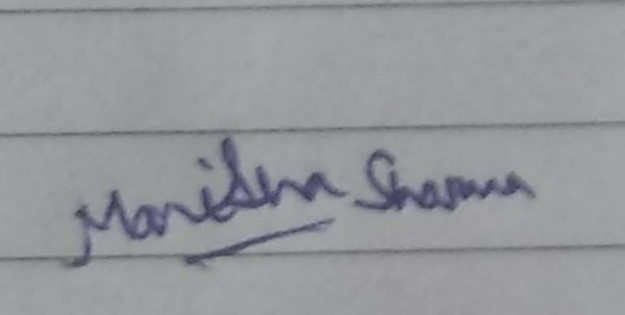 Manisha Sharma